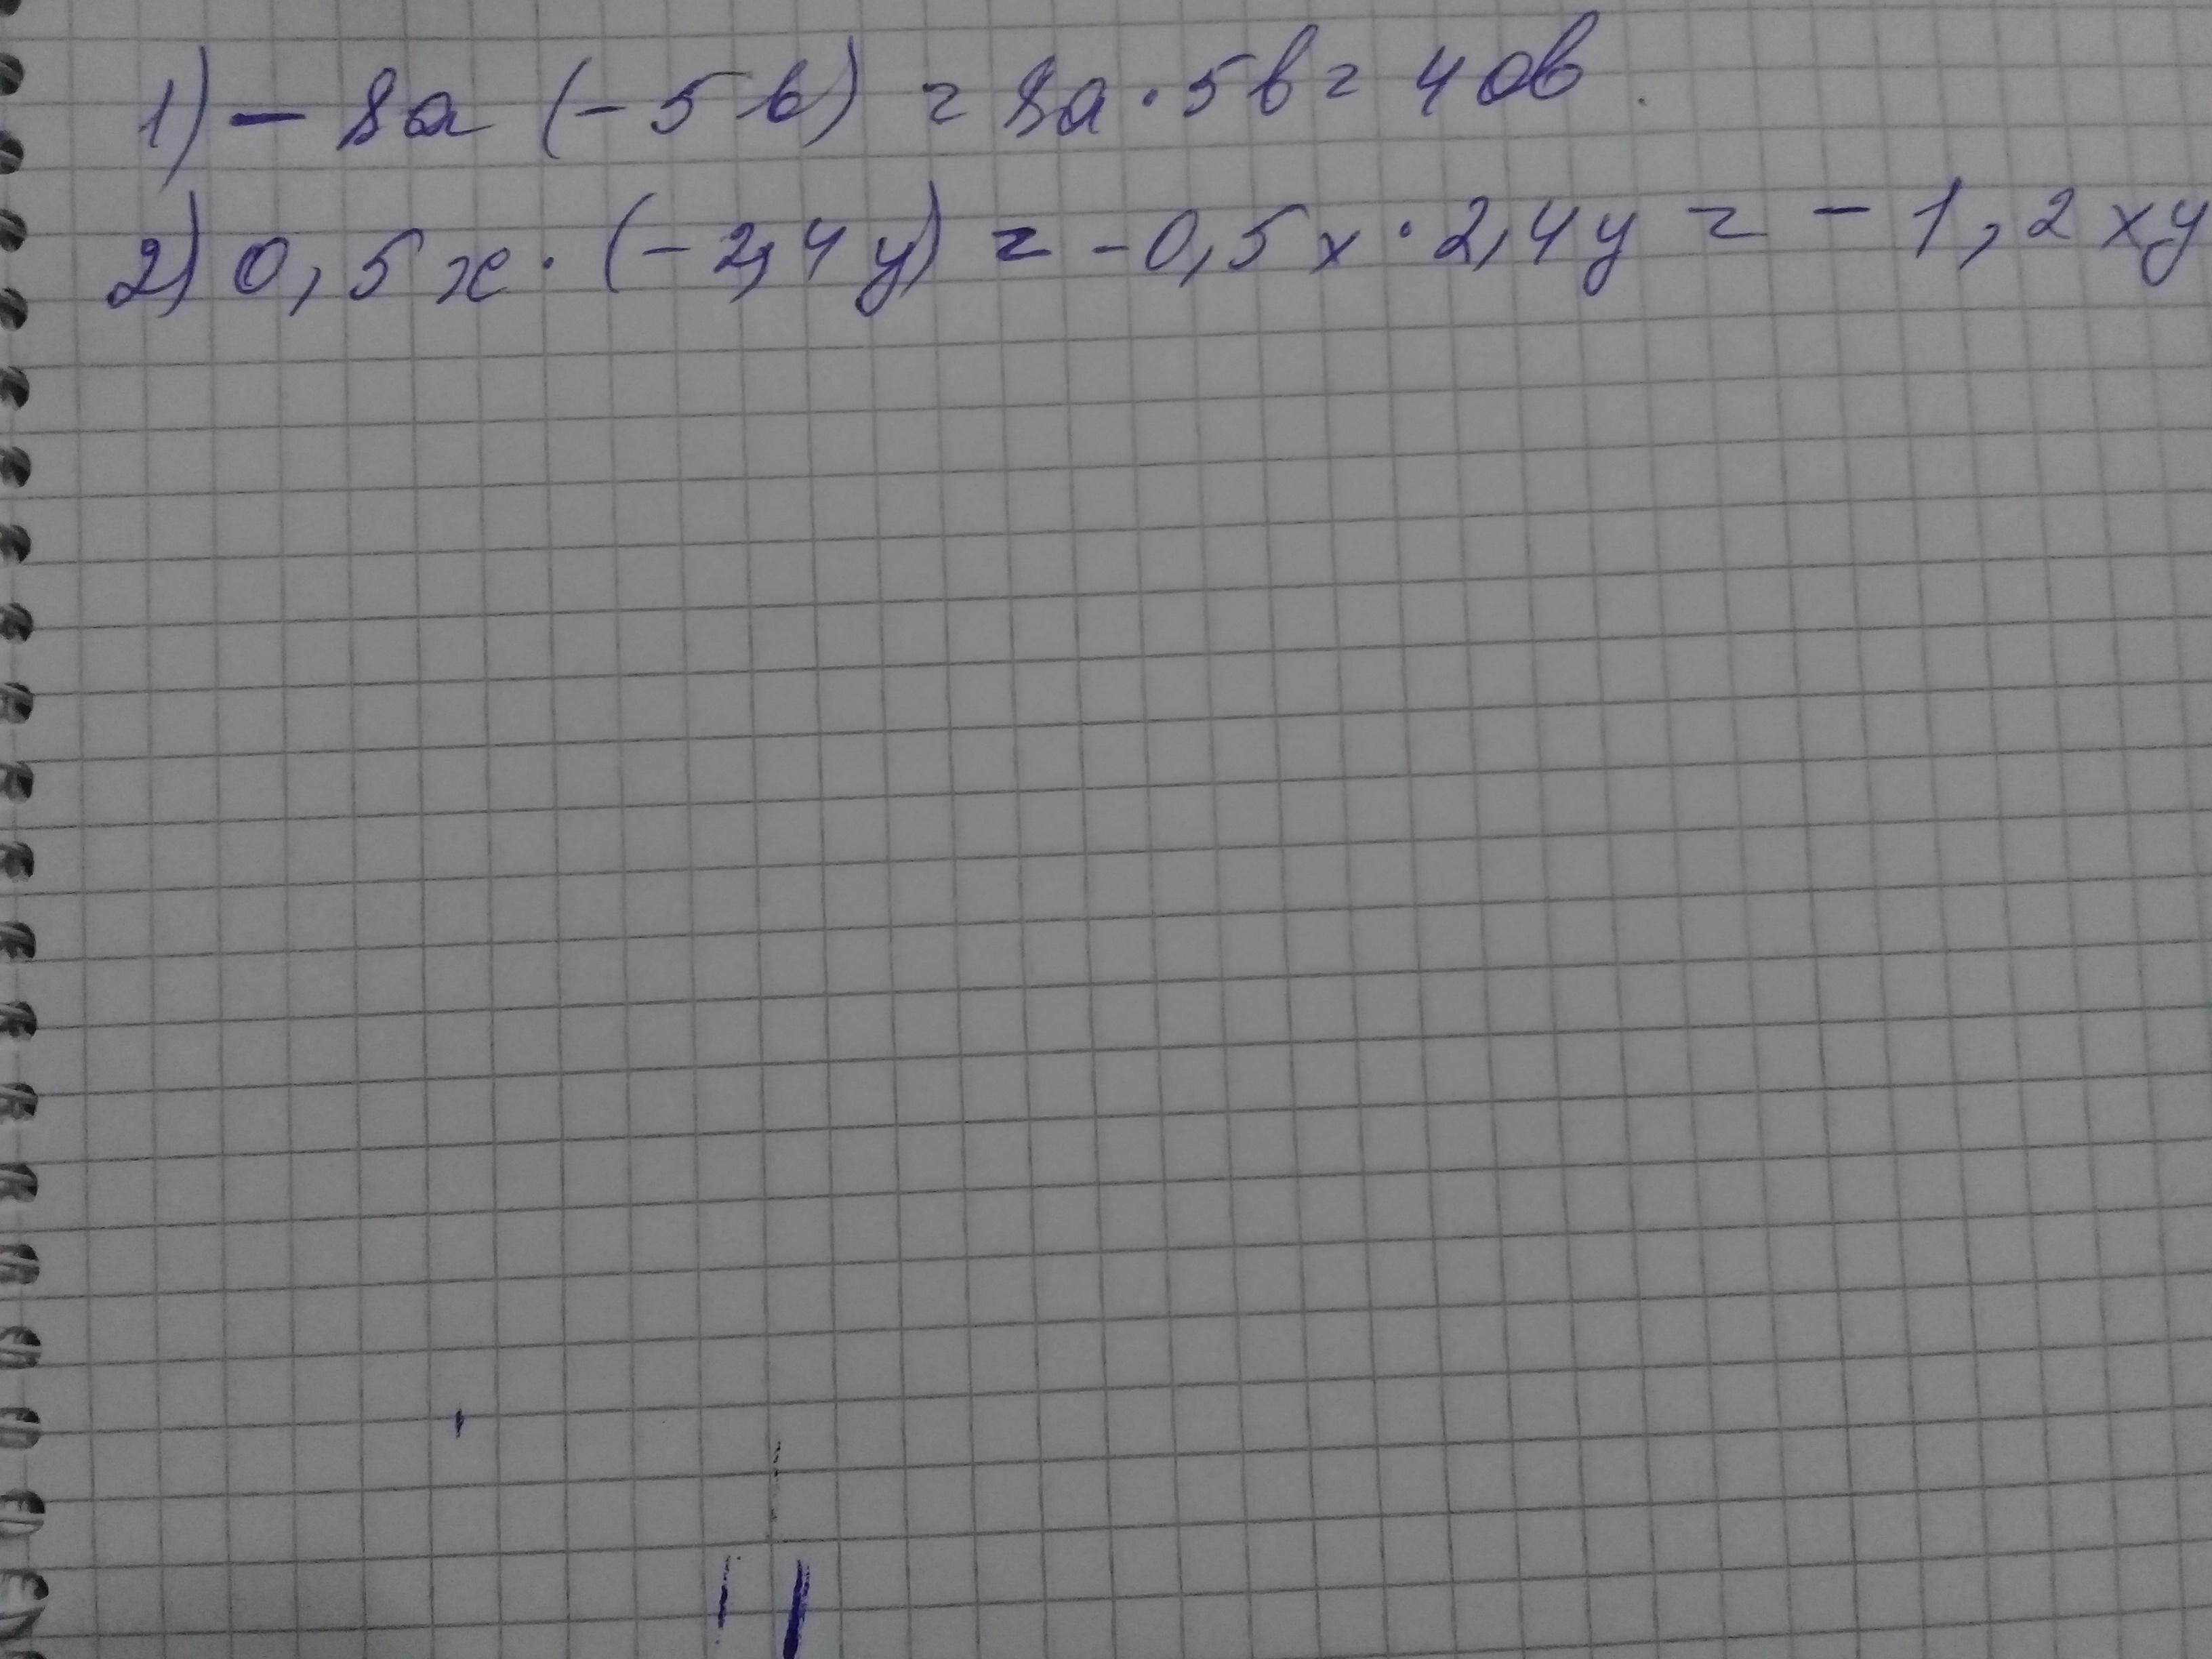 1) - 8a (-5b) = 8a · 5b = 40b.
2) 0,5x · (-2,4y) = -0,5x · 2,4y = -1,2xy